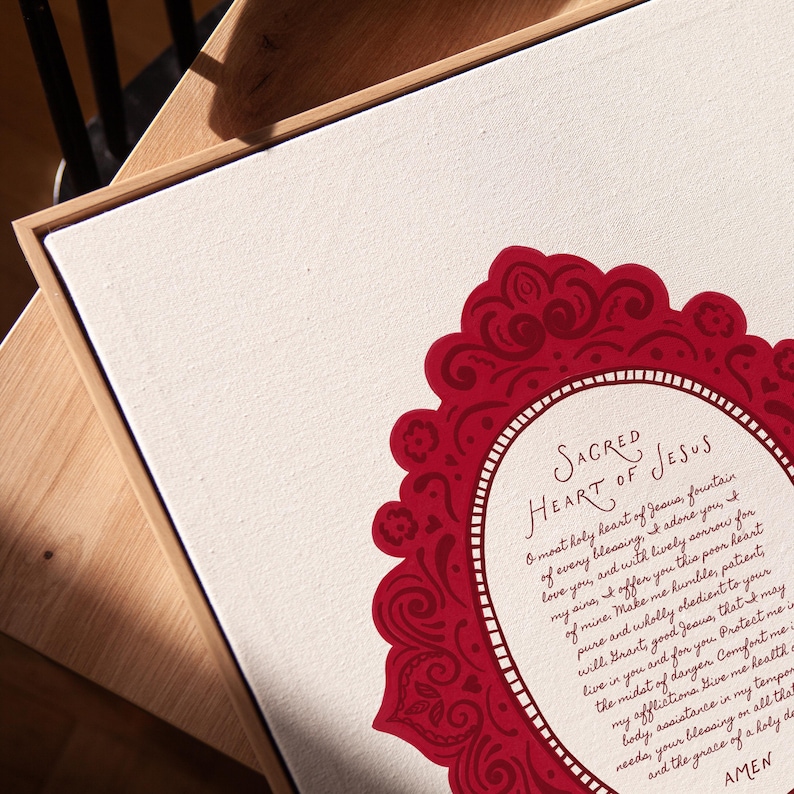 SACRED
HEART OF JESUS
O most holy heart of Jesus, fountain
of every blessing, I adore you, I
love you, and with lively sorrow for
my sins, I offer you this poor heart
of mine. Make me humble, patient,
pure and wholly obedient to your
will. Grant, good Jesus, that I may
live in you and for you. Protect me in
the midst of danger. Comfort me i
my afflictions. Give me health
body, assistance in my tempor
needs, your blessing on all that
and the grace of a holy de
AMEN